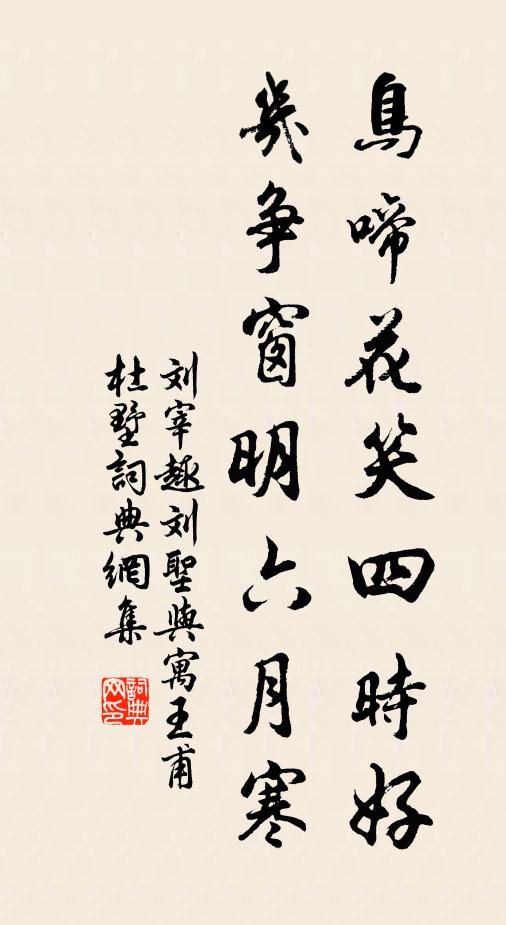 鳥啼花笑四時好
幾爭窗明六月寒
刘宰趣刘聖與寓王甫
杜墅詞典網集
詞典
网印